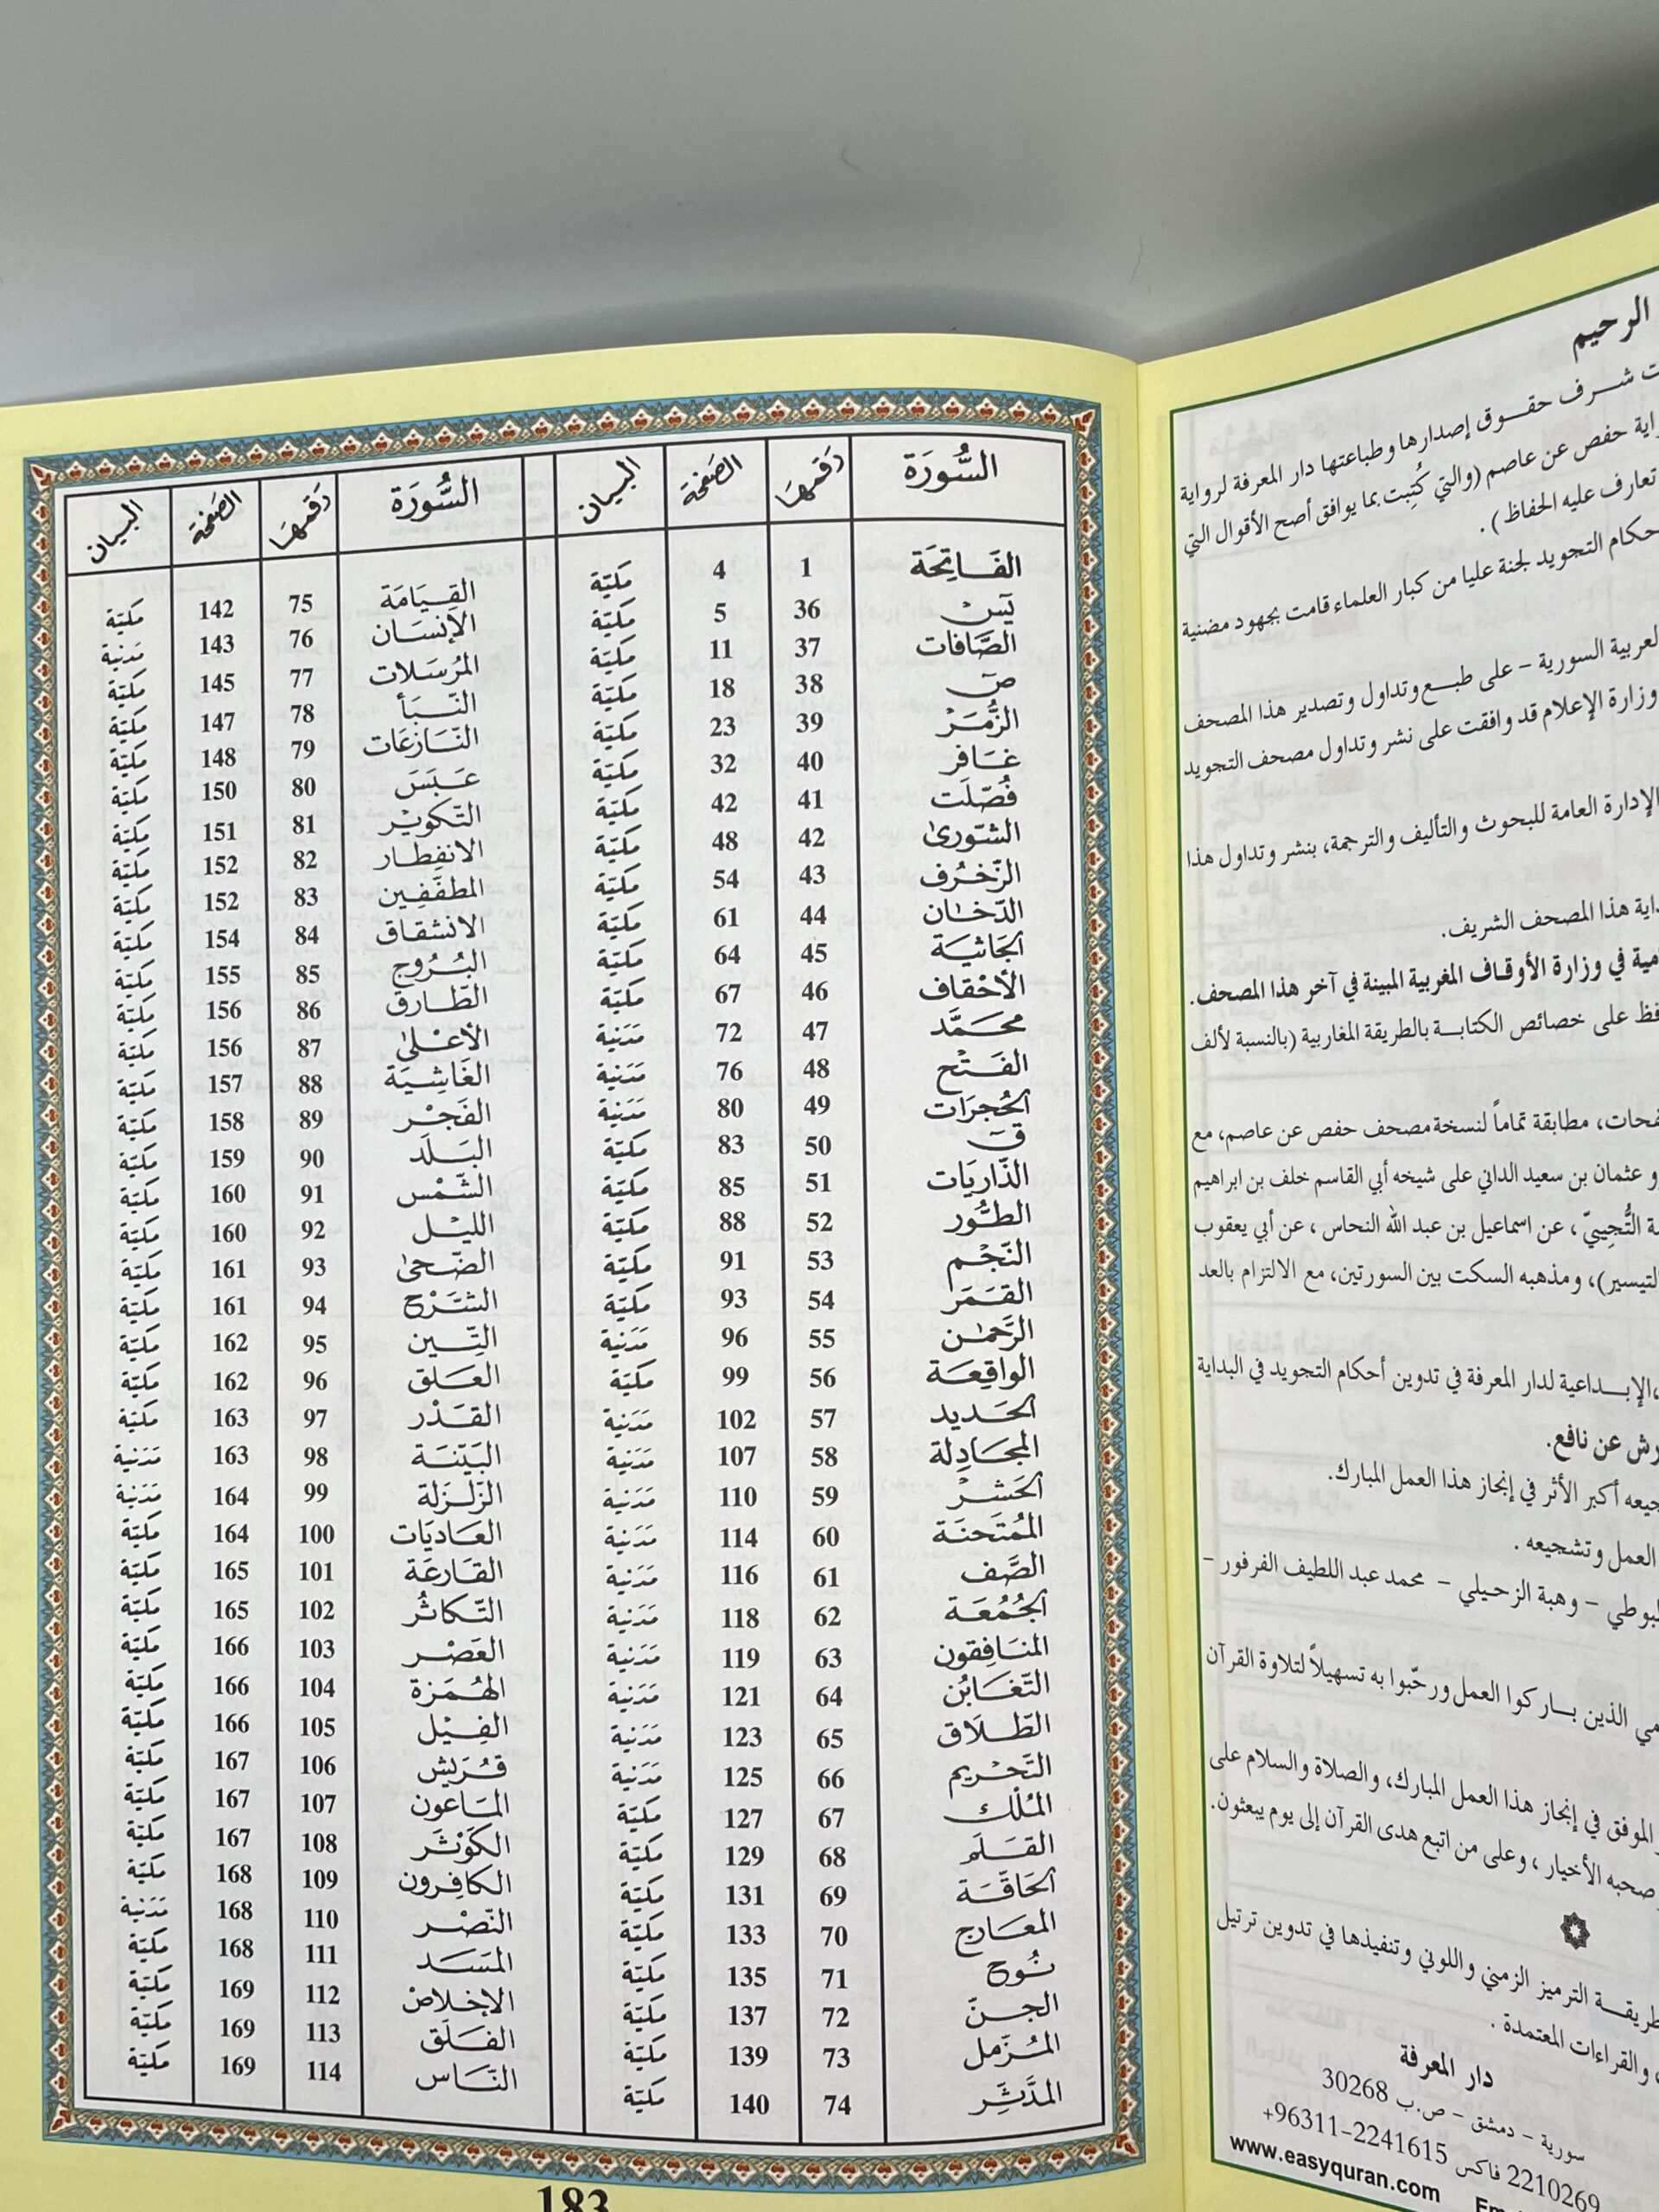 السُّورَة رَقمهَا الصَّفحَة البَيان السُّورَة رَقمهَا الصَّفحَة البَيان
الفَاتِحَة 1 4 مكيّة القِيَامَة 75 142 مكيّة
يسٓ 36 5 مكيّة الإنسَان 76 143 مَدنية
الصَّافات 37 11 مكيّة المُرسَلات 77 145 مكيّة
صٓ 38 18 مكيّة النَّبَأ 78 147 مكيّة
الزُّمَر 39 23 مكيّة النَّازعَات 79 148 مكيّة
غَافر 40 32 مكيّة عَبَسَ 80 150 مكيّة
فُصّلَت 41 42 مكيّة التّكويْر 81 151 مكيّة
الشّورىٰ 42 48 مكيّة الانفِطار 82 152 مكيّة
الزّخرُف 43 54 مكيّة المطفّفِين 83 152 مكيّة
الدّخان 44 61 مكيّة الانشقاق 84 154 مكيّة
الجَاثيَة 45 64 مكيّة البُرُوج 85 155 مكيّة
الأحْقاف 46 67 مكيّة الطّارق 86 156 مكيّة
محمَّد 47 72 مَدَنية الأعْلىٰ 87 156 مكيّة
الفَتْح 48 76 مَدَنية الغَاشِيَة 88 157 مكيّة
الحُجرَات 49 80 مَدَنية الفَجْر 89 158 مكيّة
قٓ 50 83 مكيّة البَلَد 90 159 مكيّة
الذّاريَات 51 85 مكيّة الشّمْس 91 160 مكيّة
الطُّور 52 88 مكيّة الليْل 92 160 مكيّة
النّجْم 53 91 مكيّة الضّحىٰ 93 161 مكيّة
القَمَر 54 93 مكيّة الشّرْح 94 161 مكيّة
الرَّحمٰن 55 96 مَدَنية التِّين 95 162 مكيّة
الواقِعَة 56 99 مكيّة العَلق 96 162 مكيّة
الحَديد 57 102 مَدَنية القَدْر 97 163 مكيّة
المجَادلة 58 107 مَدَنية البَيّنَة 98 163 مَدَنية
الحَشْر 59 110 مَدَنية الزّلزَلة 99 164 مَدَنية
المُمتَحنَة 60 114 مَدَنية العَاديَات 100 164 مكيّة
الصَّف 61 116 مَدَنية القَارعَة 101 165 مكيّة
الجُمُعَة 62 118 مَدَنية التّكاثُر 102 165 مكيّة
المنَافِقون 63 119 مَدَنية العَصْر 103 166 مكيّة
التّغَابُن 64 121 مَدَنية الهُمَزة 104 166 مكيّة
الطّلَاق 65 123 مَدَنية الفِيْل 105 166 مكيّة
التّحْريم 66 125 مَدَنية قُرَيش 106 167 مكيّة
المُلْك 67 127 مكيّة المَاعون 107 167 مكيّة
القَلَم 68 129 مكيّة الكَوْثَر 108 167 مكيّة
الحَاقّة 69 131 مكيّة الكافِرون 109 168 مكيّة
المعَارج 70 133 مكيّة النّصْر 110 168 مَدَنية
نُوح 71 135 مكيّة المَسَد 111 168 مكيّة
الجنّ 72 137 مكيّة الإخلاص 112 169 مكيّة
المُزّمل 73 139 مكيّة الفَلَق 113 169 مكيّة
المدَّثِّر 74 140 مكيّة النَّاس 114 169 مكيّة
183
الرحيم
شرف حقوق إصدارها وطباعتها دار المعرفة لرواية
حفص عن عاصم (والتي كُتِبت بما يوافق أصح الأقوال التي
تعارف عليه الحفاظ).
حكام التجويد لجنة عليا من كبار العلماء قامت بجهود مضنية
لعربية السورية – على طبع وتداول وتصدير هذا المصحف
وزارة الإعلام قد وافقت على نشر وتداول مصحف التجويد
الإدارة العامة للبحوث والتأليف والترجمة، بنشر وتداول هذا
داية هذا المصحف الشريف.
مية في وزارة الأوقاف المغربية المبينة في آخر هذا المصحف.
فظ على خصائص الكتابة بالطريقة المغاربية (بالنسبة لألف
فحات، مطابقة تماماً لنسخة مصحف حفص عن عاصم، مع
و عثمان بن سعيد الداني على شيخه أبي القاسم خلف بن ابراهيم
التُّجِيبيّ، عن اسماعيل بن عبد الله النحاس، عن أبي يعقوب
لتيسير)، ومذهبه السكت بين السورتين، مع الالتزام بالعد
الإبداعية لدار المعرفة في تدوين أحكام التجويد في البداية
رش عن نافع.
جيعه أكبر الأثر في إنجاز هذا العمل المبارك.
العمل وتشجيعه.
لبوطي – وهبة الزحيلي – محمد عبد اللطيف الفرفور –
مي الذين باركوا العمل ورحّبوا به تسهيلاً لتلاوة القرآن
الموفق في إنجاز هذا العمل المبارك، والصلاة والسلام على
صحبه الأخيار، وعلى من اتبع هدى القرآن إلى يوم يبعثون.
طريقة الترميز الزمني واللوني وتنفيذها في تدوين ترتيل
، والقراءات المعتمدة.
دار المعرفة
سورية – دمشق – ص.ب 30268
2210269 فاكس 2241615–96311+
www.easyquran.com